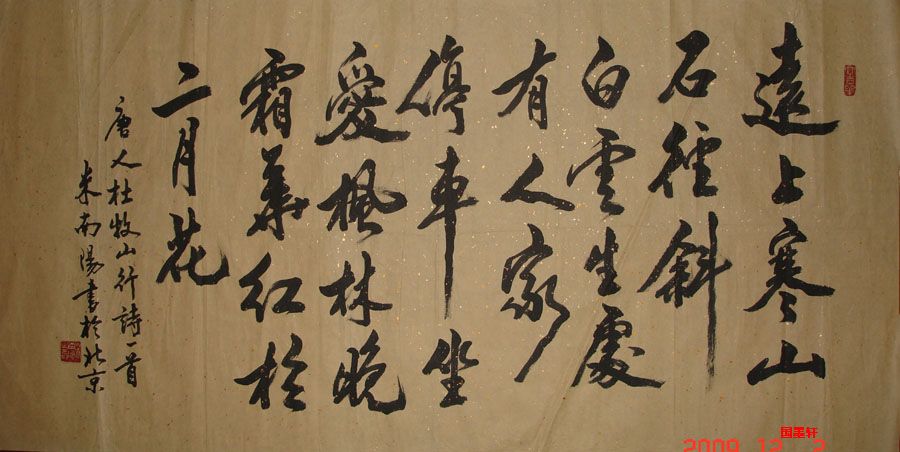 遠上寒山
石徑斜
白雲生處
有人家
停車坐
愛楓林晚
霜葉紅於
二月花
唐人杜牧山行詩一首
米南陽書於北京
国墨轩